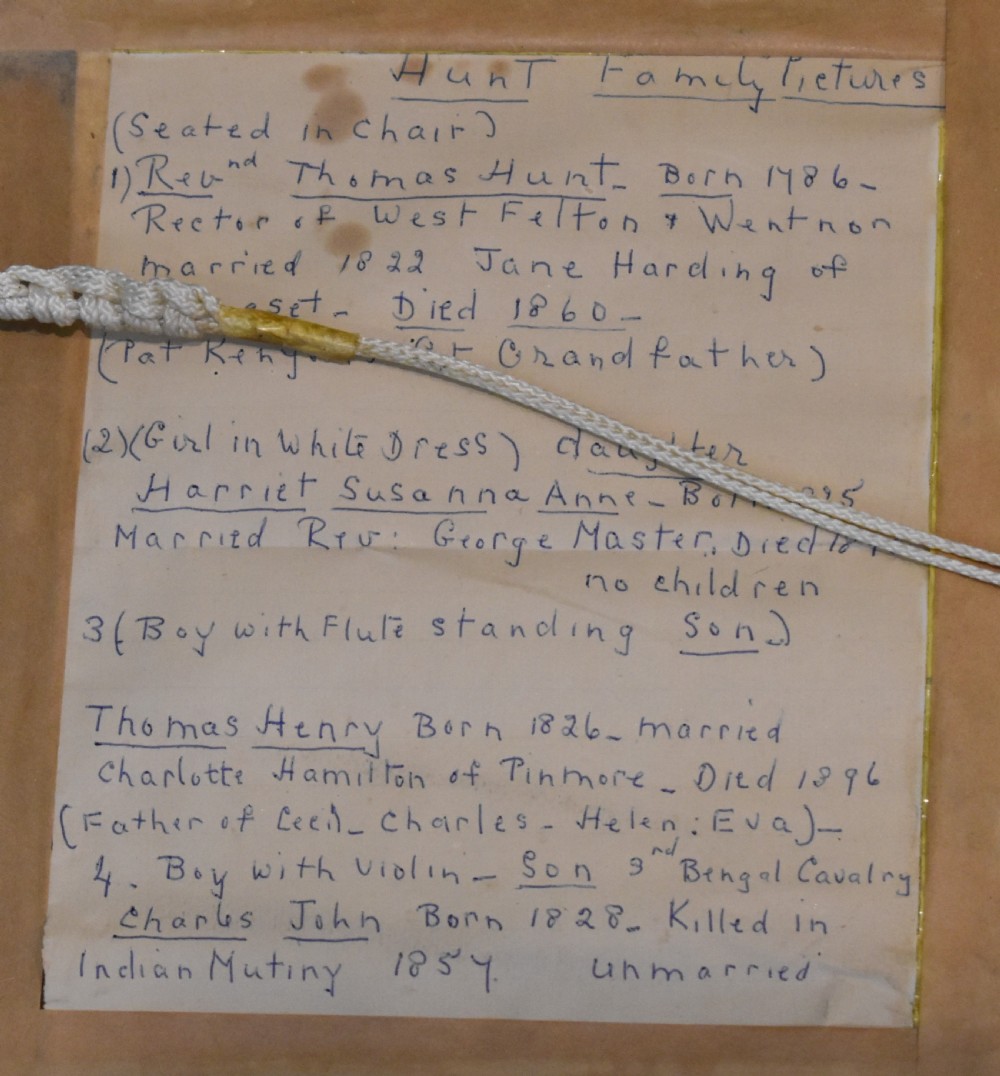 Hunt Family Pictures
(Seated in Chair)
1) Revnd Thomas Hunt - Born 1786 -
Rector of West Felton & Wentnor
married 1822 Jane Harding of
set - Died 1860 -
(Pat Grandfather)
(2) (Girl in White Dress) daughter
Harriet Susanna Anne - Born
Married Rev: George Master. Died
no children
3 (Boy with Flute standing Son.)
Thomas Henry Born 1826 - married
Charlotte Hamilton of Pinmore - Died 1896
(Father of Cecil - Charles - Helen : Eva) -
4. Boy with Violin - Son 3rd Bengal Cavalry
Charles John Born 1828 - Killed in
Indian Mutiny 1857. unmarried